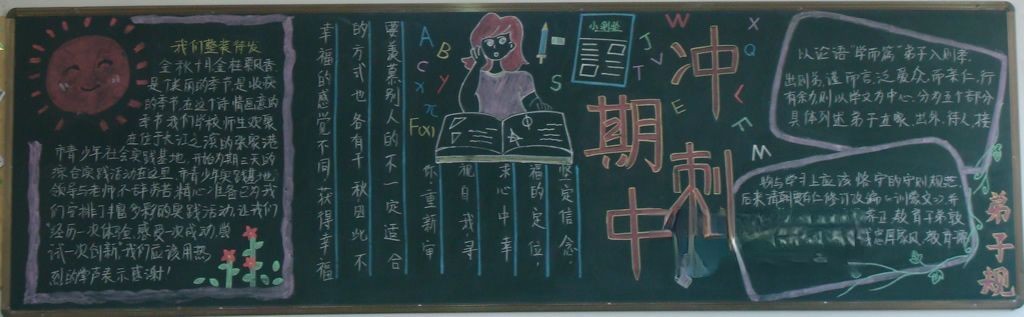 我们整装待发
金秋十月金桂飘香
是丁美丽的季节是收获
的季节在这个诗情画意的
季节我们学校师生欢聚
在位于长江之滨的张家港
市青少年社会实践基地,开始为期三天的
综合实践活动在这里,市青少年实践基地
领导与老师不辞辛苦精心准备已为我
们安排了丰富多彩的实践活动,让我们
经历一次体会,感受一次成功,尝
试一次创新"我们应该用热
烈的掌声表示感谢!
要羡慕别人的不一定适合
的方式也各有千秋因此不
幸福的感觉不同,获得幸福
坚定信念.
福的定位,
求心中幸
视自我寻
你,重新审
A
B
C
y
x
π
F(x)
小测验
S
T
J
T
V
W
X
Q
E
L
F
M
冲
刺
期
中
以论语"学而篇"弟子入则孝,
出则弟,谨而信,泛爱众,而亲仁,行
有余力,则以学文为中心.分为五个部分
具体列述弟子在家、出外、待人、接
物与学习上应该恪守的守则规范
后来清朝贾存仁修订改编《训蒙文》,并
弟子规